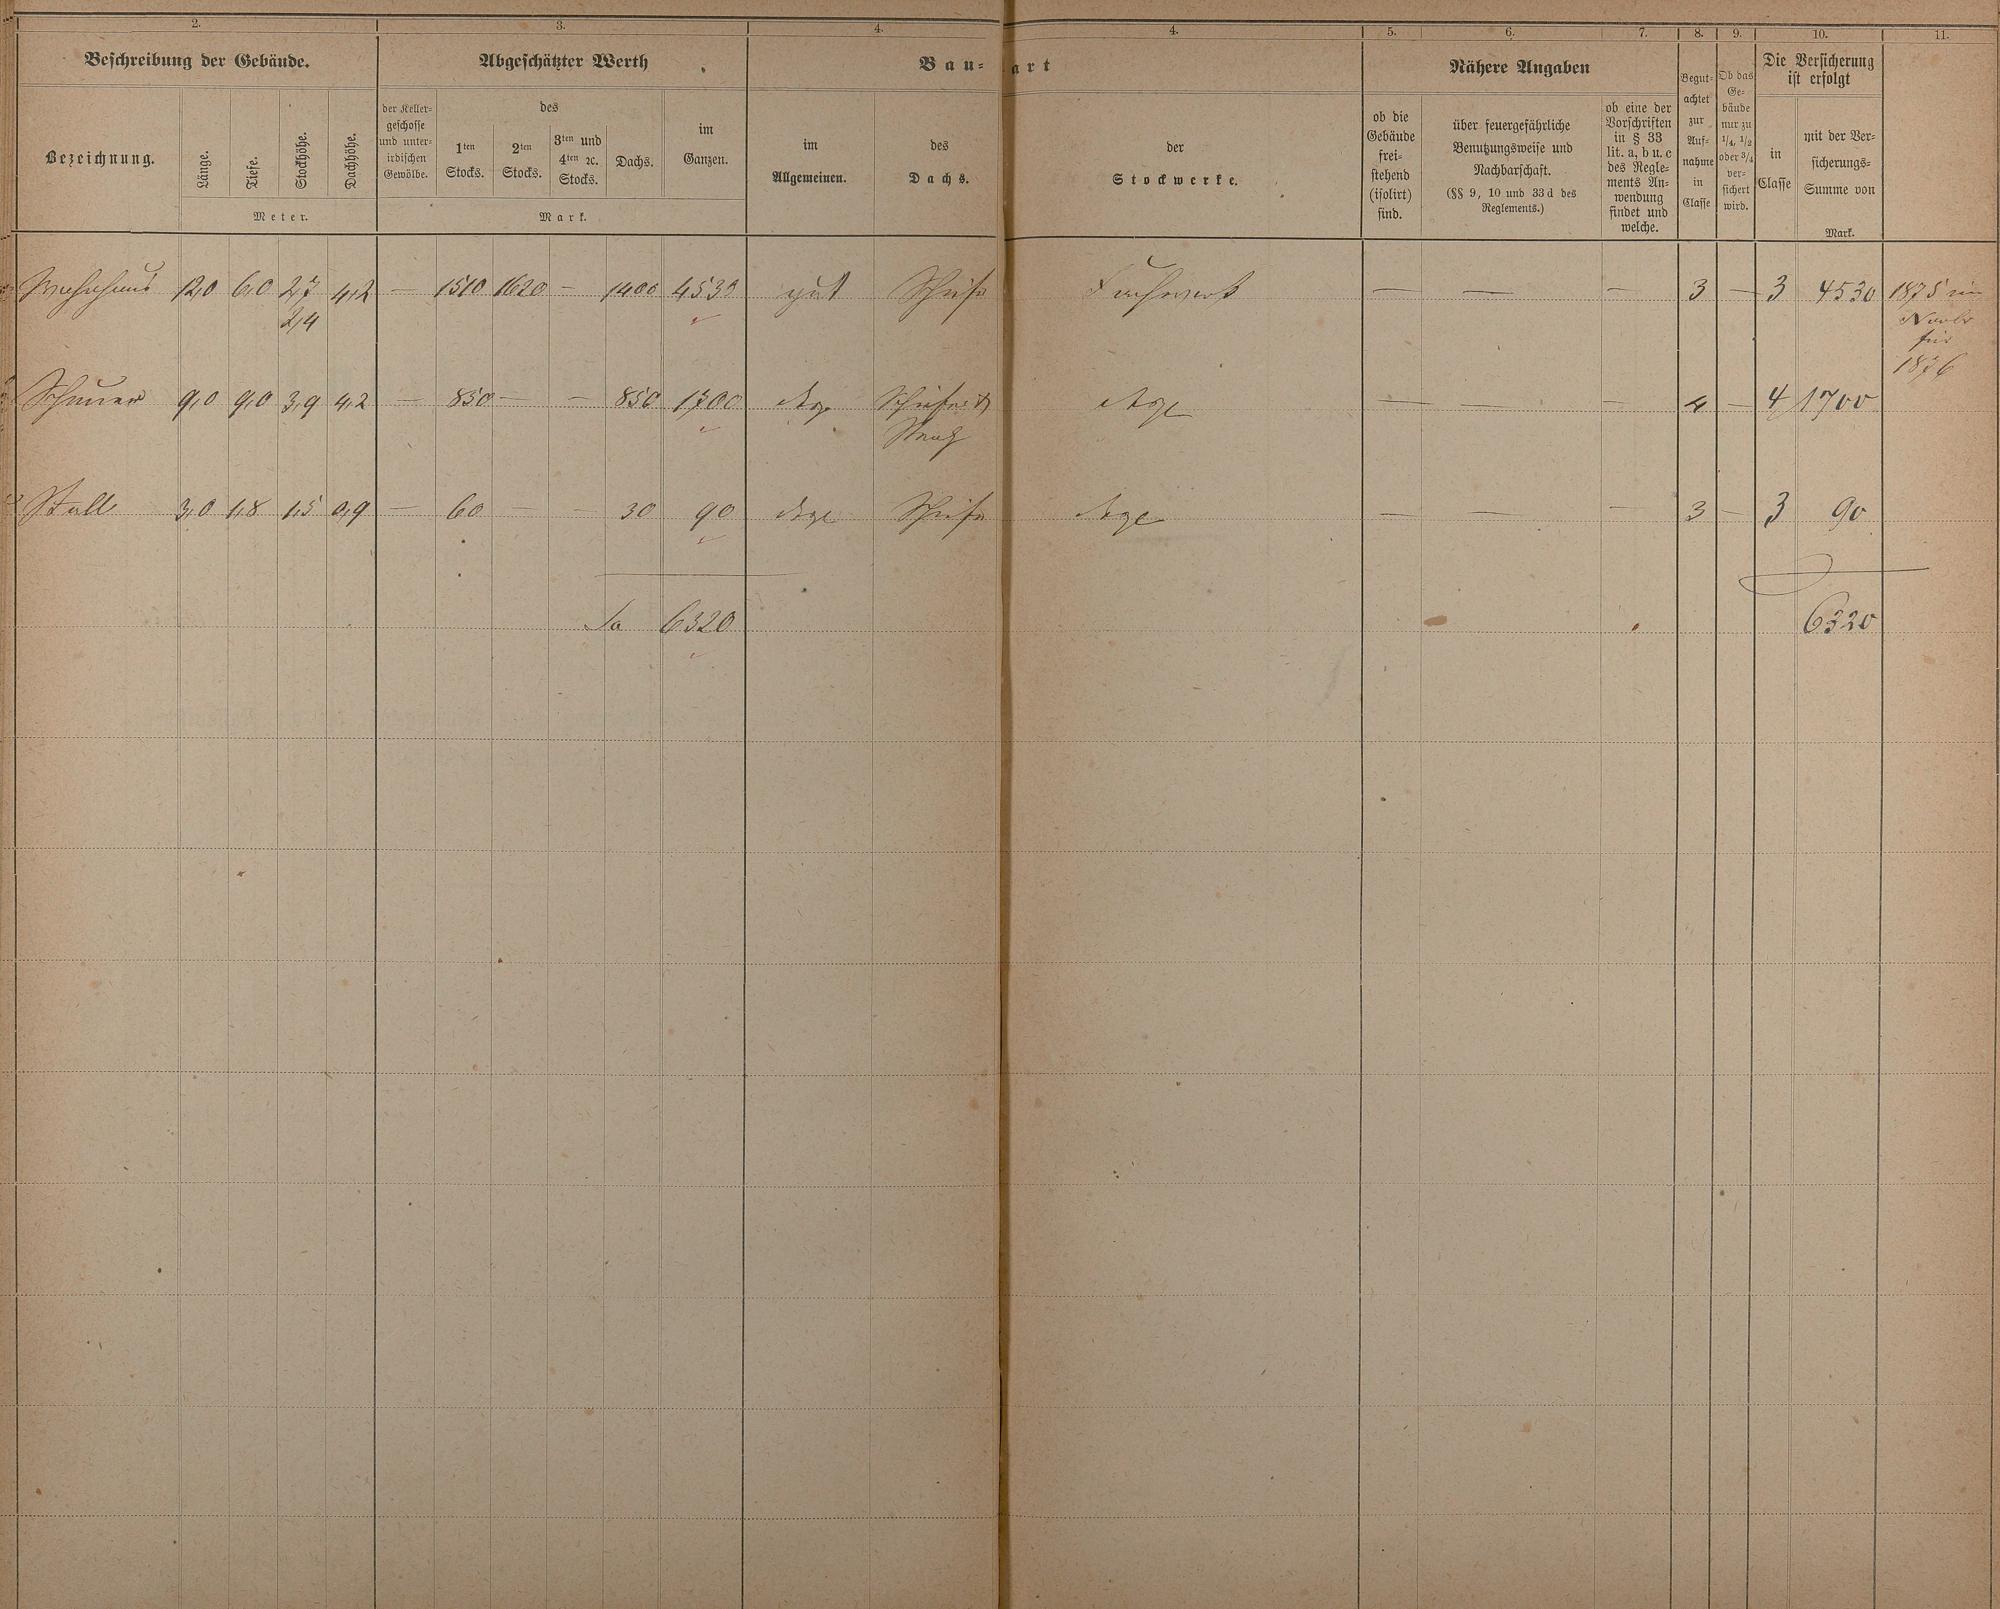 2. 3. 4. 4. 5. 6. 7. 8. 9. 10. 11.
Beschreibung der Gebäude. Abgeschätzter Werth Bau-art Nähere Angaben
Die Versicherung
ist erfolgt
Bezeichnung.
Länge.
Tiefe.
Stockhöhe.
Dachhöhe.
Meter.
der Keller-
geschosse
und unter-
irdischen
Gewölbe.
des
1ten
Stocks.
2ten
Stocks.
3ten und
4ten ꝛc.
Stocks.
Dachs.
im
Ganzen.
Mark.
im
Allgemeinen.
des
Dachs.
der
Stockwerke.
ob die
Gebäude
frei-
stehend
(isolirt)
sind.
über feuergefährliche
Benutzungsweise und
Nachbarschaft.
(§§ 9, 10 und 33 d des
Reglements.)
ob eine der
Vorschriften
in § 33
lit. a, b u. c
des Regle-
ments An-
wendung
findet und
welche.
Begut-
achtet
zur
Auf-
nahme
in
Classe
Ob das
Ge-
bäude
nur zu
1/4, 1/2
oder 3/4
ver-
sichert
wird.
in
Classe
mit der Ver-
sicherungs-
Summe von
Mark.
Wohnhaus 12,0 6,0 2,7 4,2 — 1510 1620 — 1400 4530 gut Schiefer Fachwerk — — — 3 — 3 4530 1875 im
2,4 Novbr
für
1876
Scheuer 9,0 9,0 3,9 4,2 — 850 — — 850 1700 desgl Schiefer &
Stroh
desgl — — — 4 — 4 1700
Stall 3,0 1,8 1,5 0,9 — 60 — — 30 90 desgl Schiefer desgl — — — 3 — 3 90
Sa 6320 6320